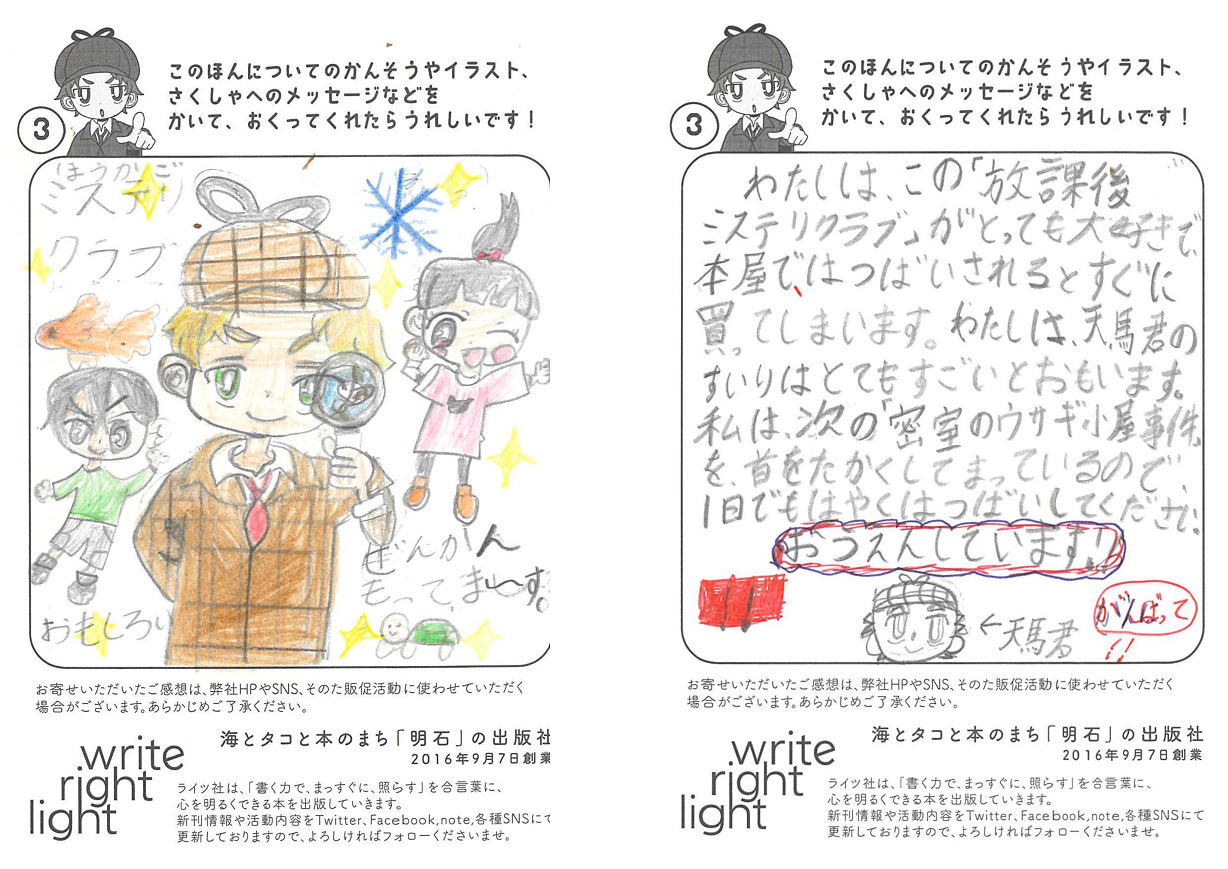 このほんについてのかんそうやイラスト、
さくしゃへのメッセージなどを
かいて、おくってくれたらうれしいです！
3
ほうかご
ミステリ
クラブ
ぜんかん
もってまーす。
おもしろい
お寄せいただいたご感想は、弊社HPやSNS、そのた販促活動に使わせていただく
場合がございます。あらかじめご了承ください。
海とタコと本のまち「明石」の出版社
2016年9月7日創業
write
right
light
ライツ社は、「書く力で、まっすぐに、照らす」を合言葉に、
心を明るくできる本を出版していきます。
新刊情報や活動内容をTwitter、Facebook,note,各種SNSにて
更新しておりますので、よろしければフォローくださいませ。
このほんについてのかんそうやイラスト、
さくしゃへのメッセージなどを
かいて、おくってくれたらうれしいです！
3
わたしは、この「放課後
ミステリクラブ」がとっても大好きで、
本屋ではつばいされるとすぐに
買ってしまいます。わたしは、天馬君の
すいりはとてもすごいとおもいます。
私は、次の「密室のウサギ小屋事件
を、首をたかくしてまっているので、
1日でもはやくはつばいしてください。
おうえんしています!!
←天馬君
がんばって
!!
お寄せいただいたご感想は、弊社HPやSNS、そのた販促活動に使わせていただく
場合がございます。あらかじめご了承ください。
海とタコと本のまち「明石」の出版社
2016年9月7日創業
write
right
light
ライツ社は、「書く力で、まっすぐに、照らす」を合言葉に、
心を明るくできる本を出版していきます。
新刊情報や活動内容をTwitter、Facebook,note,各種SNSにて
更新しておりますので、よろしければフォローくださいませ。